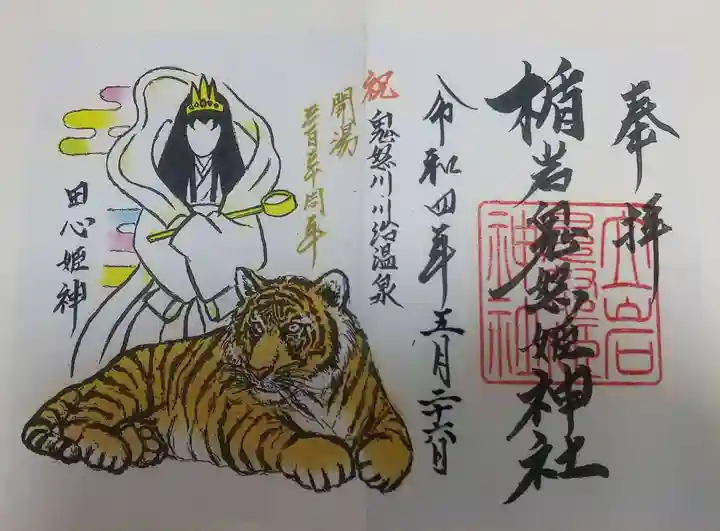 奉拝
楯岩鬼怒姫神社
令和四年五月二十六日
祝 鬼怒川川治温泉
開湯
三百三十周年
田心姫神